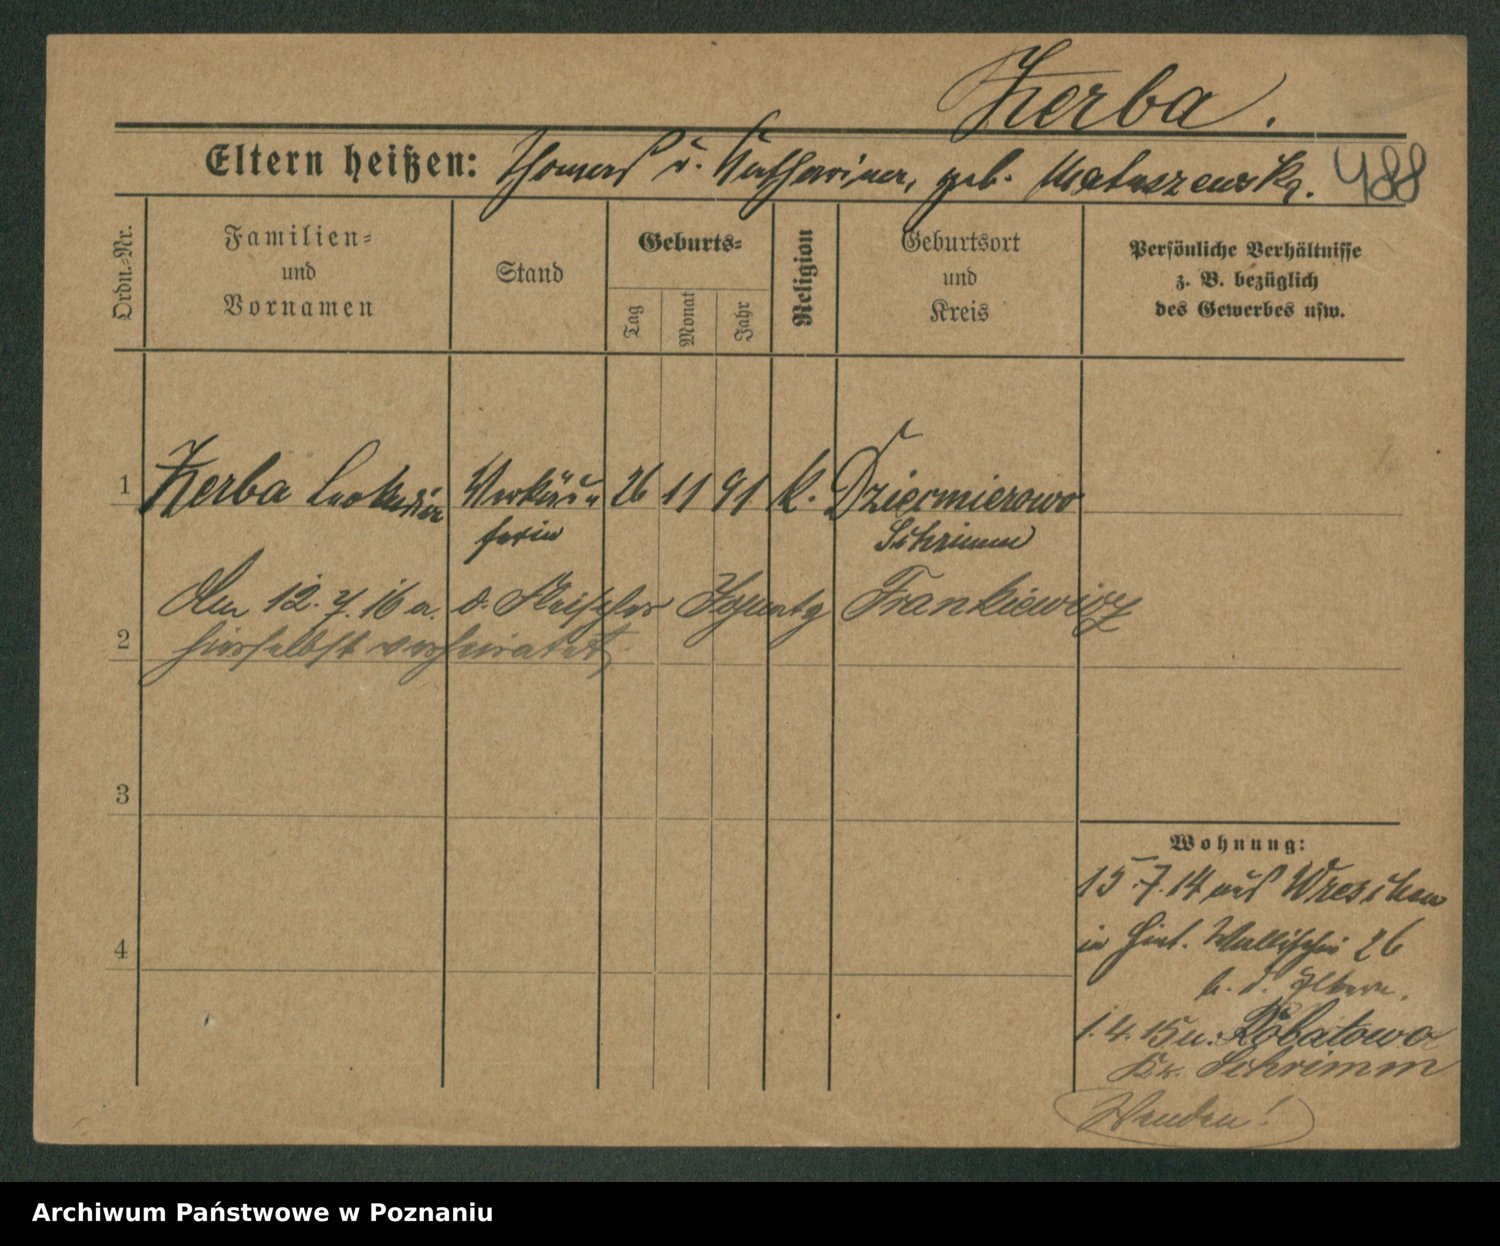 Zerba.
Eltern heißen: Thomas u. Katharina, geb. Matuszewska. 488
Ordn.-Nr.
Familien-
und
Vornamen
Stand
Geburts-
Tag
Monat
Jahr
Religion
Geburtsort
und
Kreis
Persönliche Verhältnisse
z. B. bezüglich
des Gewerbes usw.
1 Zerba Leokadia Verkäu- 26 11 91 K. Dziermierowo
ferin Schrimm
Am 12. 7. 16 a. d. Fleischer Ignatz Frankiewicz
2 hierselbst verheiratet
3
4
Wohnung:
15.7.14 aus Wreschen
in Hint. Wallischei 26
b. d. Eltern.
1. 4. 15 n. Robatowo
Kr. Schrimm
Wenden!
Archiwum Państwowe w Poznaniu